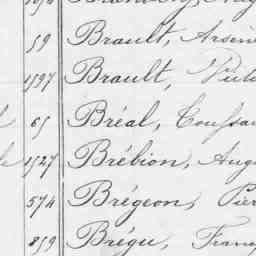 59 Brault, Arsène
1597 Brault, Victo
65 Bréal, Toussa
1527 Brébion, Augu
574 Brégeon, Pier
859 Brégu, Franç